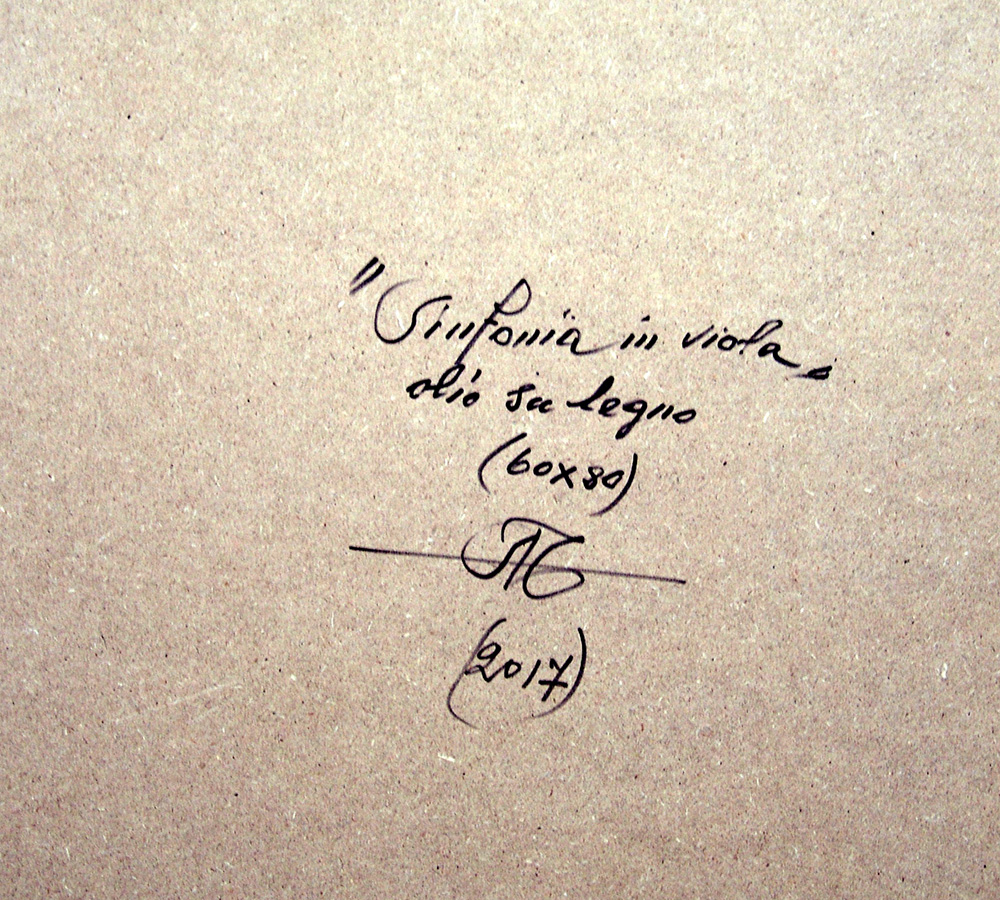 "Sinfonia in viola„
olio su legno
(60x80)
(2017)